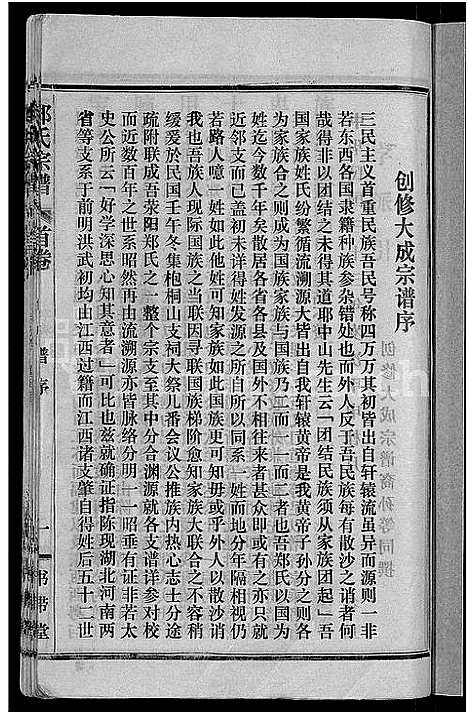 创修大成宗谱序
三民主义首重民族吾民号称四万万其初皆出自轩辕流虽异而源则一非
若东西各国隶籍种族参杂错处也而外人反于吾民族每有散沙之诮者何
哉得非以团结之未得其道耶中山先生云「团结民族须从家族团起」吾
国家族姓氏纷繁循流溯源大皆出自我轩辕黄帝是我黄帝子孙分之则各
为家族合之则成国族家族与国族乃二而一一而二者也吾郑氏以国为
姓迄今数千年矣散居各省各县及国外不相往来者甚众即或有之亦只就
近邻支而已盖初未详得姓发源之所自所以同系一姓而地分年隔相视仍
若路人噫一姓如此他姓可知家族如此国族更可知毋或乎外人以散沙诮
我也吾族人现际国族之当联因寻联国族梯阶愈知家族大联合之不容稍
缓爰於民国壬午冬集枹桐山支祠大祭儿番会议公推族内热心志士分途
疏附联成吾荥阳郑氏之一整个宗支至其中分合渊源就各支谱详参对校
而近数百年之世系昭然再由流溯源亦皆脉络分明一一昭垂有证非若太
史公所云「好学深思心知其意者」可比也兹就确证指陈现湖北河南两
省等支系于前明洪武初均由江西过籍而江西诸支肇自得姓后五十二世
郑氏宗谱
首卷
谱序
一
书带堂
创修大成宗谱裔孙等同撰